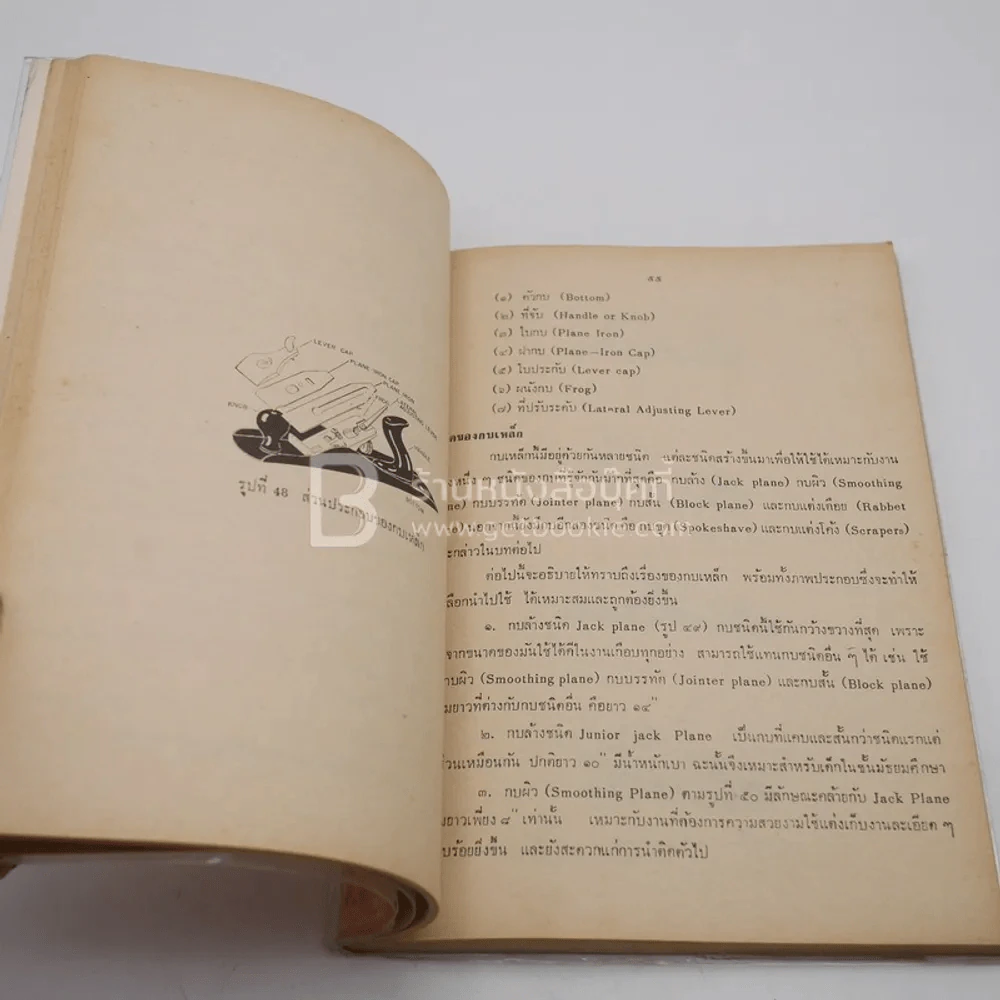 LEVER CAP
PLANE IRON CAP
PLANE IRON
FROG
LATERAL
ADJUSTING LEVER
KNOB
HANDLE
BOTTOM
รูปที่ 48 ส่วนประกอบของกบเหล็ก
๕๕
(๑) ตัวกบ (Bottom)
(๒) ที่จับ (Handle or Knob)
(๓) ใบกบ (Plane Iron)
(๔) ฝากบ (Plane—Iron Cap)
(๕) ใบประกับ (Lever cap)
(๖) ผนังกบ (Frog)
(๗) ที่ปรับระดับ (Lateral Adjusting Lever)
ดของกบเหล็ก
กบเหล็กนี้มีอยู่ด้วยกันหลายชนิด แต่ละชนิดสร้างขึ้นมาเพื่อให้ใช้ได้เหมาะกับงาน
หนึ่ง ๆ ชนิดของกบที่รู้จักกันมากที่สุดคือ กบล้าง (Jack plane) กบผิว (Smoothing
กบบรรทัด (Jointer plane) กบสั้น (Block plane) และกบแต่งเดือย (Rabbet
นอกจากนี้ยังมีกบอีกสองชนิด คือ กบขูด (Spokeshave) และกบแต่งโค้ง (Scrapers)
ะกล่าวในบทต่อไป
ต่อไปนี้จะอธิบายให้ทราบถึงเรื่องของกบเหล็ก พร้อมทั้งภาพประกอบซึ่งจะทำให้
ลือกนำไปใช้ ได้เหมาะสมและถูกต้องยิ่งขึ้น
๑. กบล้างชนิด Jack plane (รูป ๔๙) กบชนิดนี้ใช้กันกว้างขวางที่สุด เพราะ
จากขนาดของมันใช้ได้ดีในงานเกือบทุกอย่าง สามารถใช้แทนกบชนิดอื่น ๆ ได้ เช่น ใช้
าบผิว (Smoothing plane) กบบรรทัด (Jointer plane) และกบสั้น (Block plane)
มยาวที่ต่างกับกบชนิดอื่น คือยาว ๑๔"
๒. กบล้างชนิด Junior jack Plane เป็นกบที่แคบและสั้นกว่าชนิดแรกแต่
ส่วนเหมือนกัน ปกติยาว ๑๐" มีน้ำหนักเบา ฉะนั้นจึงเหมาะสำหรับเด็กในชั้นมัธยมศึกษา
๓. กบผิว (Smoothing Plane) ตามรูปที่ ๕๐ มีลักษณะคล้ายกับ Jack Plane
มยาวเพียง ๘" เท่านั้น เหมาะกับงานที่ต้องการความสวยงามใช้แต่งเก็บงานละเอียด ๆ
บร้อยยิ่งขึ้น และยังสะดวกแก่การนำติดตัวไป
ร้านหนังสือบุ๊คกี้
www.getbookie.com